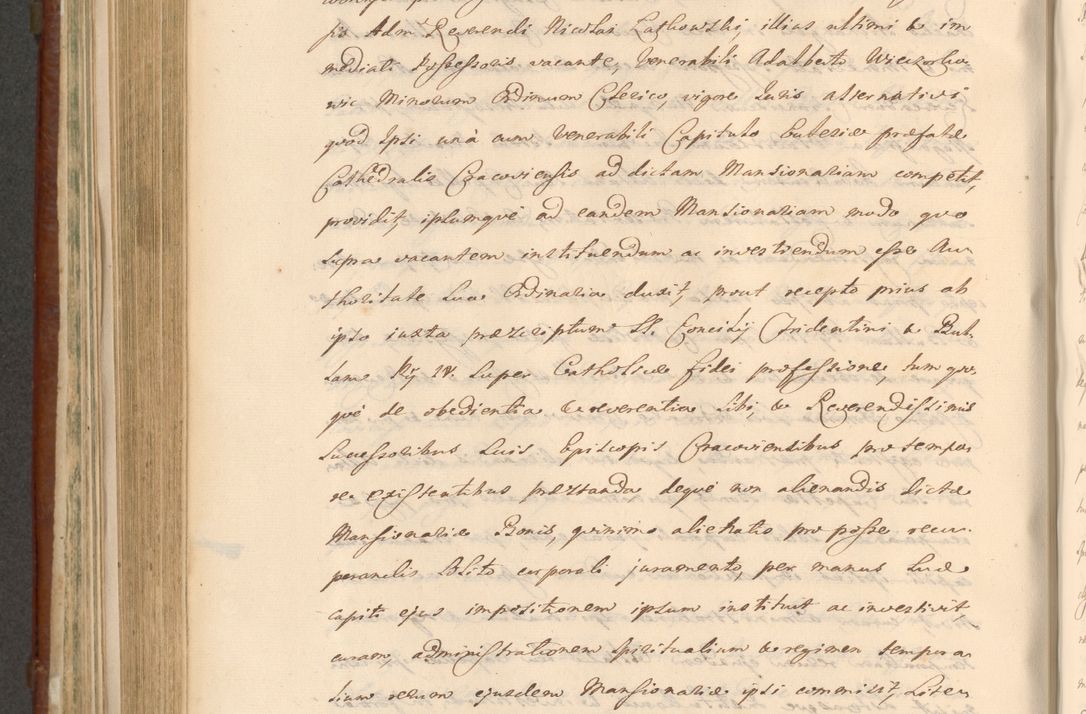 ps Adm Reverendi Nicolai Lathowskj illius ultimi & im
mediati Possessoris vacante, Venerabili Adalberto Wieczorko
wic Minorum Ordinum Clerico, vigore Juris alternativi
quod Ipsi unà cum Venerabili Capitulo Ecclesiæ præfatæ
Cathedralis Cracoviensis ad dictam Mansionariam competit,
providit, ipsumquè ad eandem Mansionariam modo quo
supra vacantem instituendum ac investiendum esse Au
thoritate sua Ordinaria duxit, prout recepto prius ab
ipso iuxta præscriptum S. Concilij Tridentini & Bul
lam Pij IV. super Catholicæ fidei professione, tum quo
què de obedientia & reverentia sibi, & Reverendissimis
Successoribus suis Episcopis Cracoviensibus pro tempo
re existentibus præstanda dequè non alienandis dictæ
Mansionariæ Bonis, quinimo alienatis pro posse recu
perandis solito corporali juramento, per manus suæ
capiti ejus impositionem ipsum instituit ac investivit
curam, administrationem spiritualium & regimen tempora
lium rerum ejusdem Mansionariæ ipsi commisit, Liter